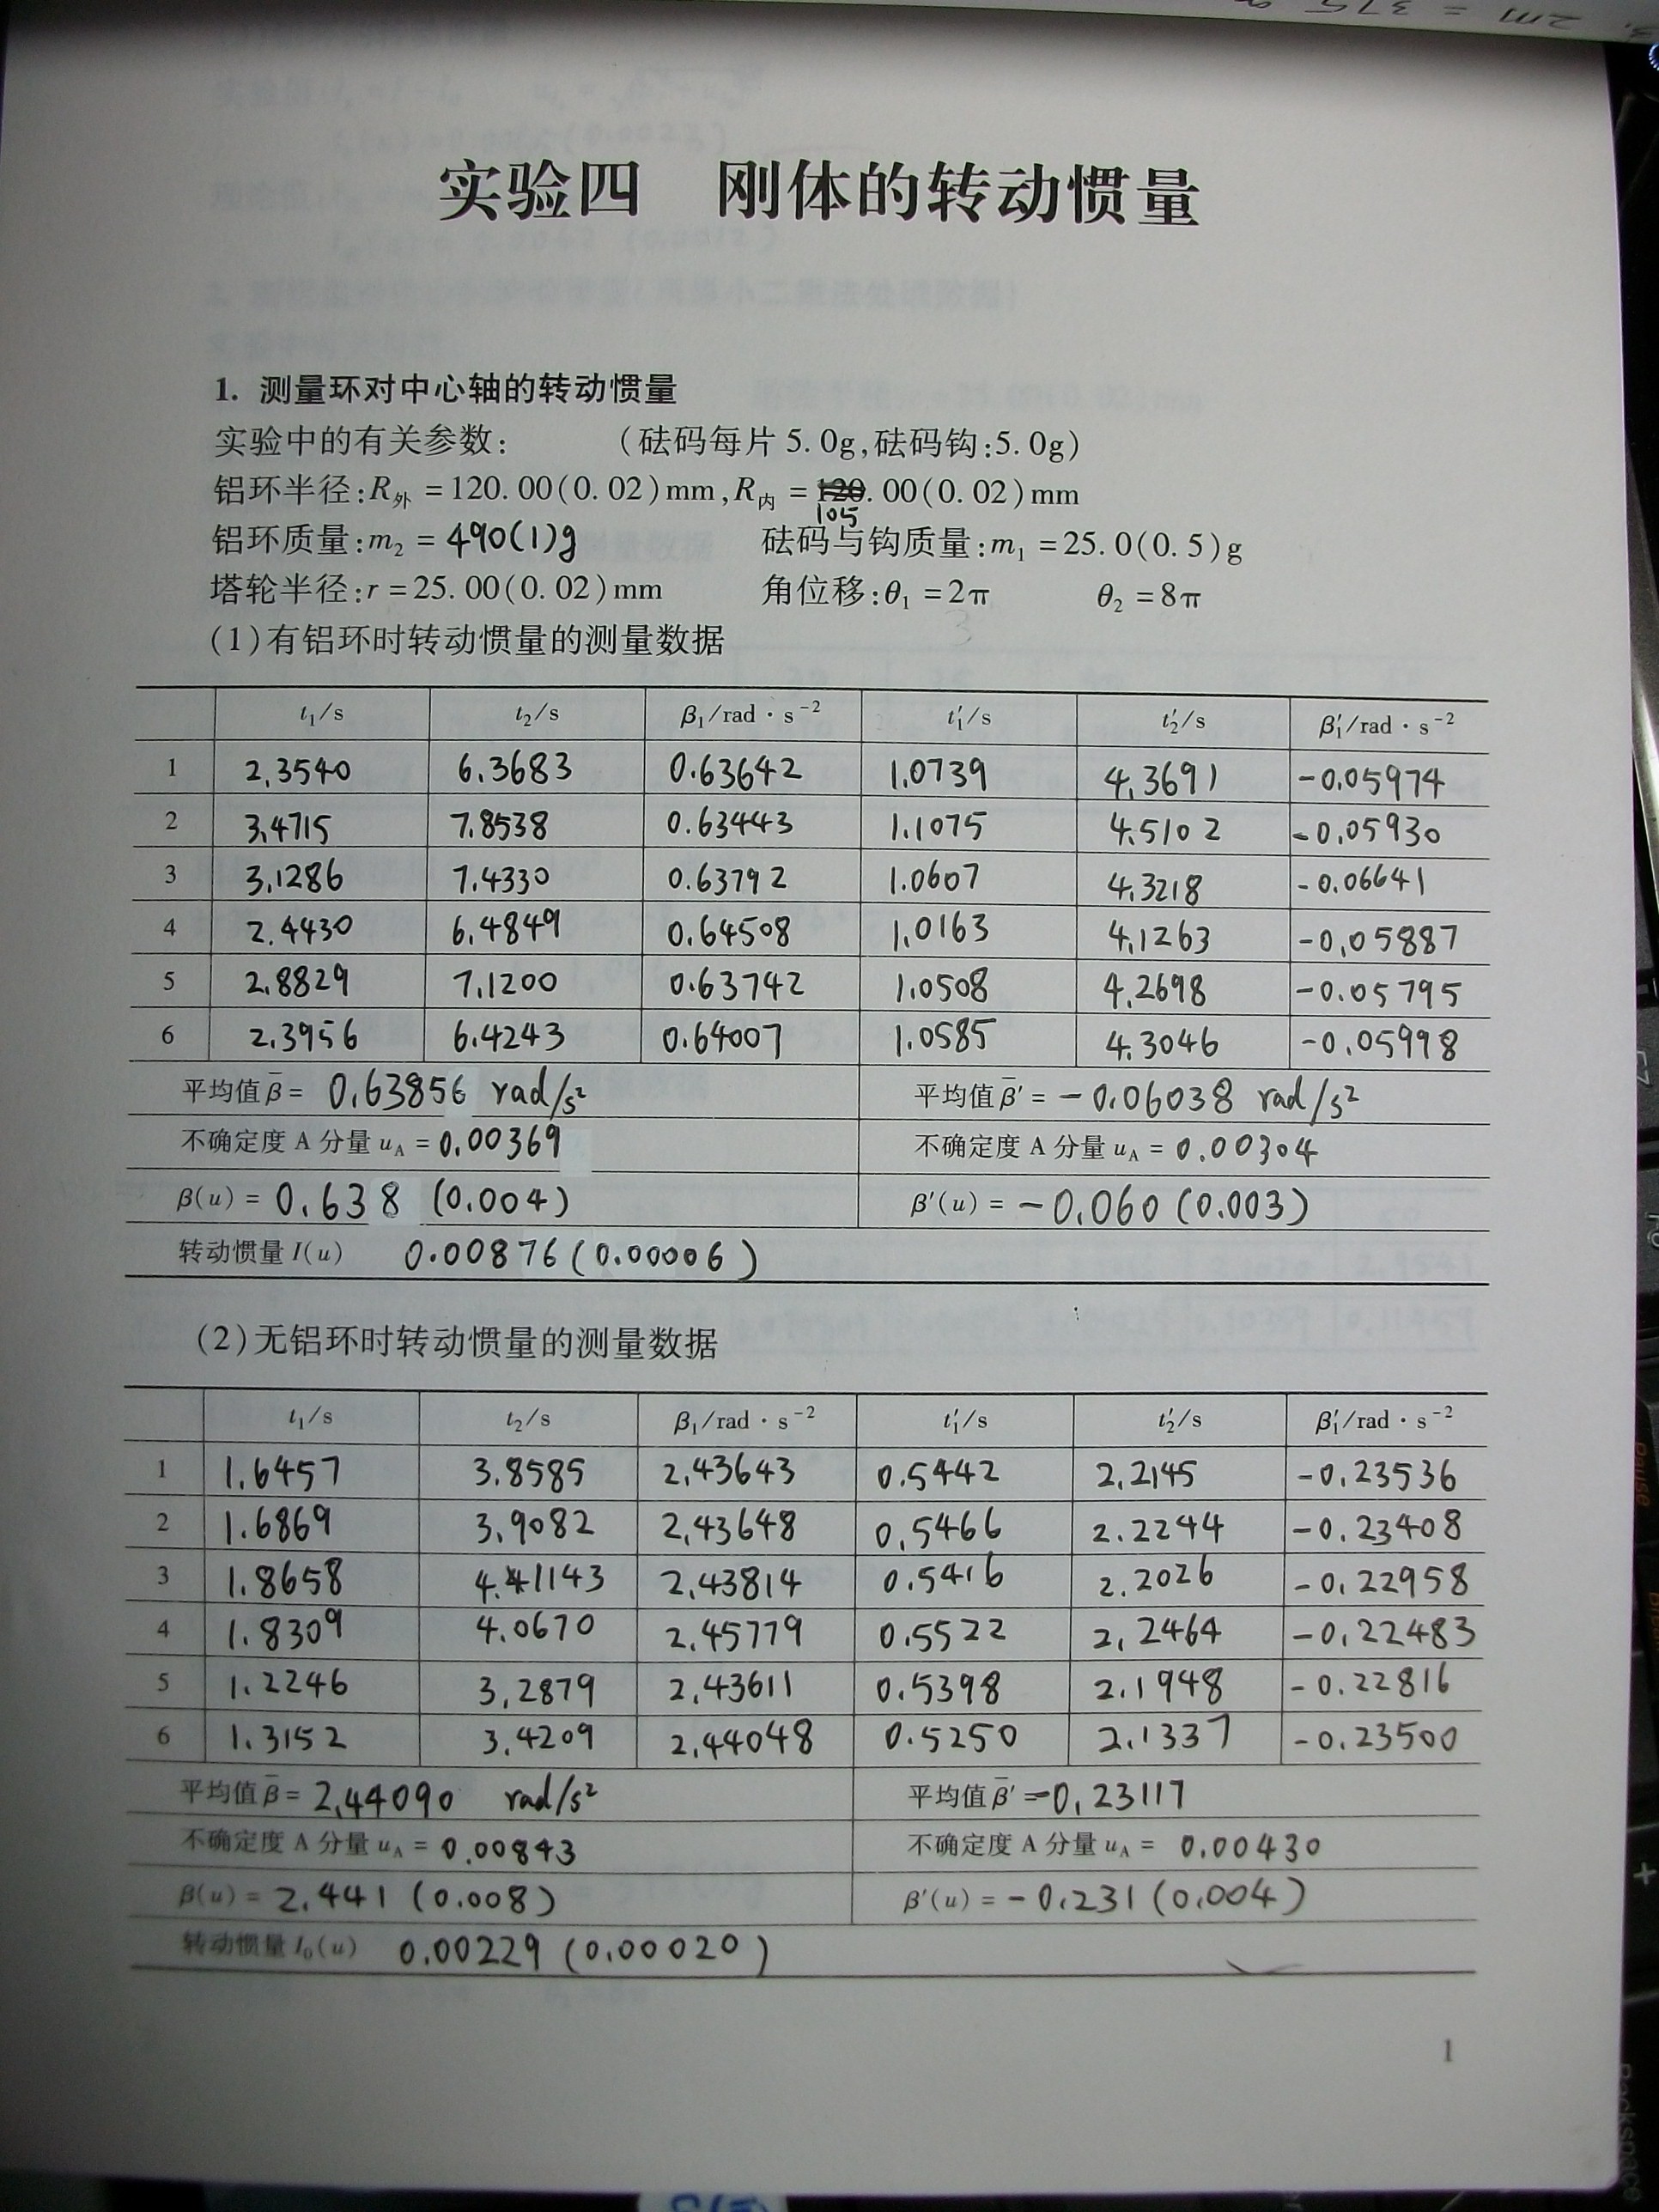 实验四 刚体的转动惯量
1. 测量环对中心轴的转动惯量
实验中的有关参数: (砝码每片 5.0g,砝码钩:5.0g)
铝环半径:R外 =120.00(0.02)mm,R内 =120.00(0.02)mm
105
铝环质量:m₂ = 490(1)g 砝码与钩质量:m₁ =25.0(0.5)g
塔轮半径:r=25.00(0.02)mm 角位移:θ₁ =2π θ₂ =8π
3
(1)有铝环时转动惯量的测量数据
t₁/s t₂/s β₁/rad·s⁻² t′₁/s t′₂/s β′₁/rad·s⁻²
1 2.3540 6.3683 0.63642 1.0739 4.3691 -0.05974
2 3.4715 7.8538 0.63443 1.1075 4.5102 -0.05930
3 3.1286 7.4330 0.63792 1.0607 4.3218 -0.06641
4 2.4430 6.4849 0.64508 1.0163 4.1263 -0.05887
5 2.8829 7.1200 0.63742 1.0508 4.2698 -0.05795
6 2.3956 6.4243 0.64007 1.0585 4.3046 -0.05998
平均值 β̄ = 0.63856 rad/s² 平均值 β̄′ = -0.06038 rad/s²
不确定度 A 分量 uA = 0.00369 不确定度 A 分量 uA = 0.00304
β(u) = 0.638 (0.004) β′(u) = -0.060 (0.003)
转动惯量 I(u) 0.00876 (0.00006)
(2)无铝环时转动惯量的测量数据
t₁/s t₂/s β₁/rad·s⁻² t′₁/s t′₂/s β′₁/rad·s⁻²
1 1.6457 3.8585 2.43643 0.5442 2.2145 -0.23536
2 1.6869 3.9082 2.43648 0.5466 2.2244 -0.23408
3 1.8658 4.1143 2.43814 0.5416 2.2026 -0.22958
4 1.8309 4.0670 2.45779 0.5522 2.2464 -0.22483
5 1.2246 3.2879 2.43611 0.5398 2.1948 -0.22816
6 1.3152 3.4209 2.44048 0.5250 2.1337 -0.23500
平均值 β̄ = 2.44090 rad/s² 平均值 β̄′ = -0.23117
不确定度 A 分量 uA = 0.00843 不确定度 A 分量 uA = 0.00430
β(u) = 2.441 (0.008) β′(u) = -0.231 (0.004)
转动惯量 I₀(u) 0.00229 (0.00020)
1